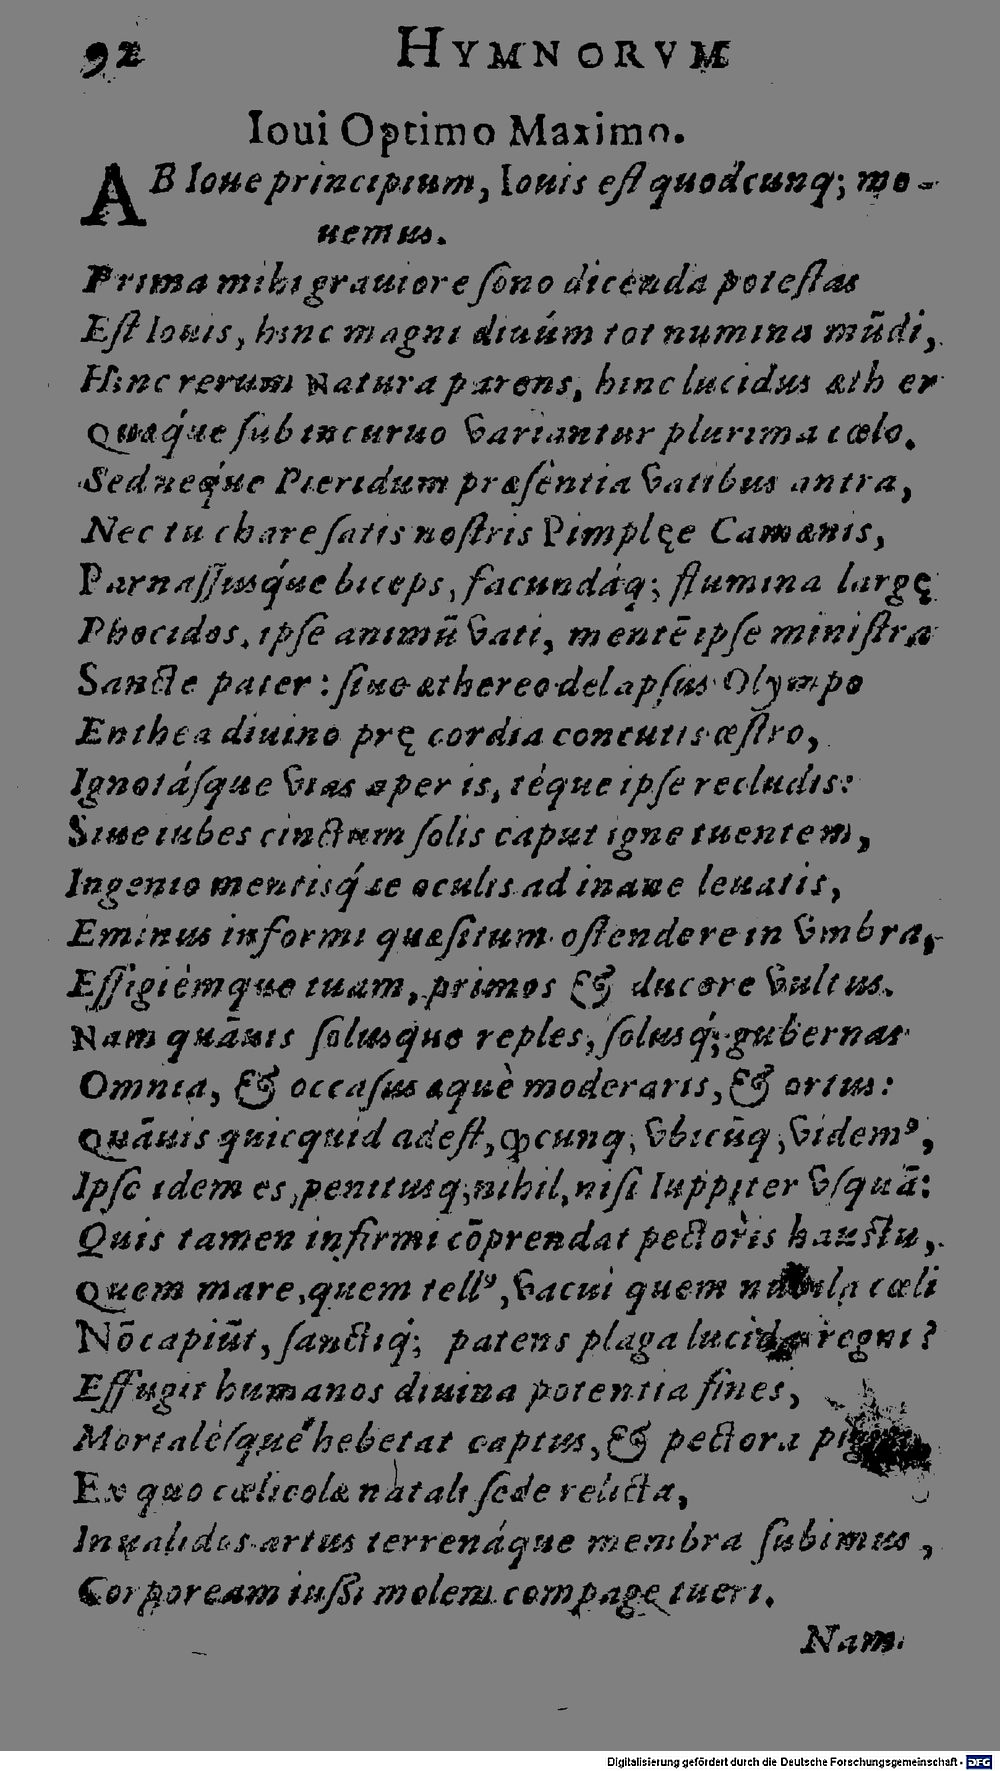 92 HYMNORVM
Ioui Optimo Maximo.
AB Ioue principium, Iouis est quodcunq; mo-
uemus.
Prima mihi grauiore sono dicenda potestas
Est Iouis, hinc magni diuúm tot numina mũdi,
Hinc rerum Natura parens, hinc lucidus æther
Quæq́ue sub incuruo variantur plurima cœlo.
Sed neq́ue Pieridum præsentia vatibus antra,
Nec tu chare satis nostris Pimplęe Camœnis,
Parnassusq́ue biceps, facundáq; flumina largę
Phocidos, ipse animũ vati, mentē ipse ministra
Sancte pater: siue æthereo delapsus Olympo
Enthea diuino pręcordia concutis œstro,
Ignotásque vias aperis, téque ipse recludis:
Siue iubes cinctum solis caput igne tuentem,
Ingenio mentisq́ue oculis ad inane leuatis,
Eminus informi quæsitum ostendere in vmbra,
Effigiémque tuam, primos & ducere vultus.
Nam quãuis solusque reples, solusq́; gubernas
Omnia, & occasus æquè moderaris, & ortus:
Quãuis quicquid adest, ꝙcunq; vbicũq; videmꝰ,
Ipse idem es, penitusq; nihil, nisi Iuppiter vsquā:
Quis tamen infirmi cōprendat pectoris haustu,
Quem mare, quem tellꝰ, vacui quem nubila cœli
Nō capiũt, sanctiq́; patens plaga lucida regni?
Effugit humanos diuina potentia fines,
Mortalésque hebetat captus, & pectora
Ex quo cœlicolæ natali sede relicta,
Inualidos artus terrenáque membra subimus,
Corpoream iussi molem compage tueri.
Nam
Digitalisierung gefördert durch die Deutsche Forschungsgemeinschaft - DFG